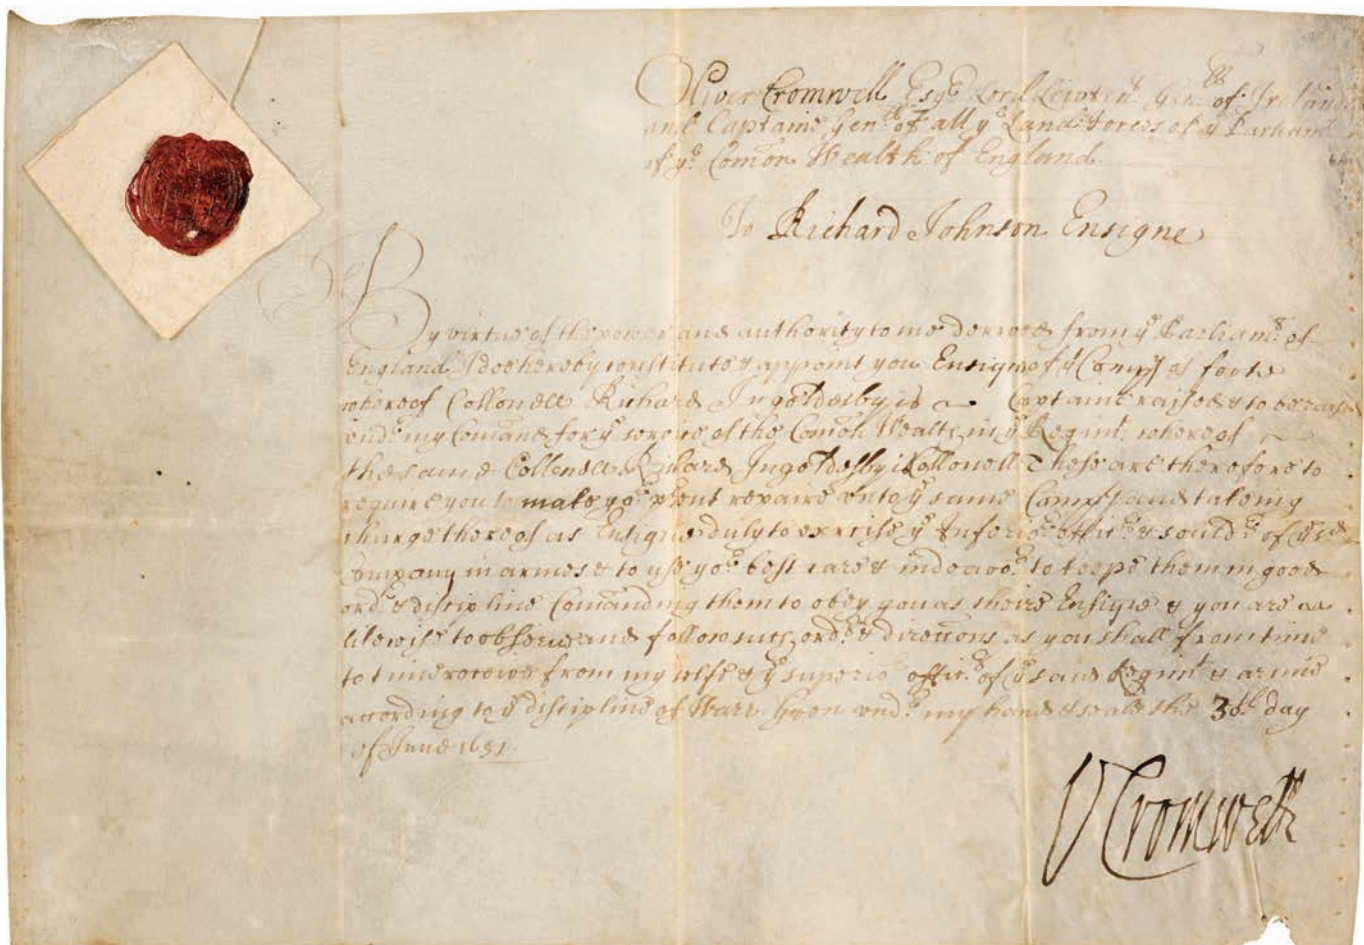 Oliver Cromwell Esqr Lord Leivten.t Gen.ll of Ireland
and Captaine Gen.ll of all ye Land fforces of ye Parliam.t
of ye Comon Wealth of England
To Richard Johnson Ensigne
By virtue of the power and authority to me derived from ye Parliamt. of
England I doe hereby constitute & appoint you Ensigne of ye Compy of foote
whereof Collonell Richard Ingoldesby is Captaine raised & to be raised
undr. my Comand for ye service of the Comon Wealth in ye Regimt. whereof
the same Collonell Richard Ingoldesby is Collonell These are therefore to
require you to make yor. psent repaire unto ye same Compy and takeing
charge thereof as Ensigne duly to exercise ye Inferior. officrs. & souldrs. of ye sd
Company in armes & to use yor. best care & indeavor. to keepe them in good
ordr. & discipline Comanding them to obey you as theire Ensigne & you are
likewise to observe and follow such ordrs. & direcons as you shall from time
to time receive from my selfe & ye superior officrs. of ye said Regimt. & armie
according to ye discipline of Warr. Given undr. my hand & seale the 30th. day
of June 1651.
O Cromwell